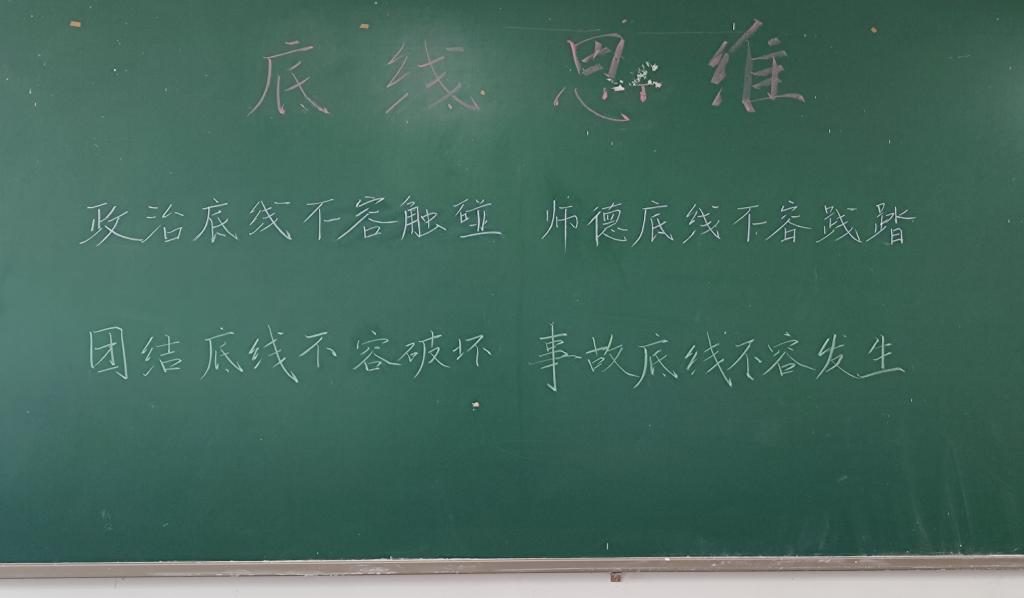 底线思维
政治底线不容触碰 师德底线不容践踏
团结底线不容破坏 事故底线不容发生